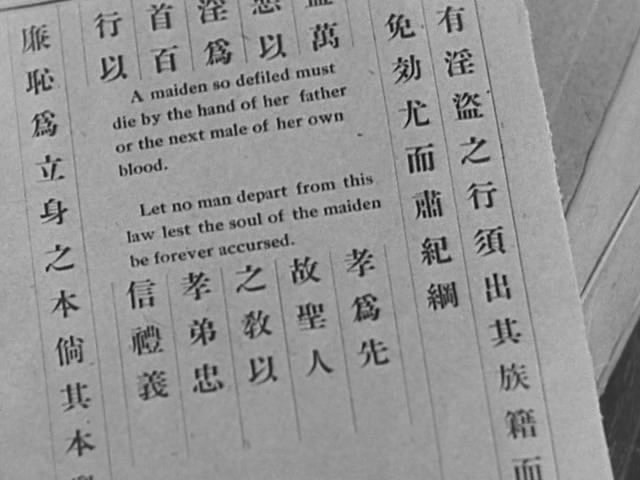 有淫盜之行須出其族籍而
免効尤而肅紀綱
萬
惡以
淫爲
首百
行以
A maiden so defiled must
die by the hand of her father
or the next male of her own
blood.
Let no man depart from this
law lest the soul of the maiden
be forever accursed.
孝爲先
故聖人
之敎以
孝弟忠
信禮義
廉恥爲立身之本倘其本